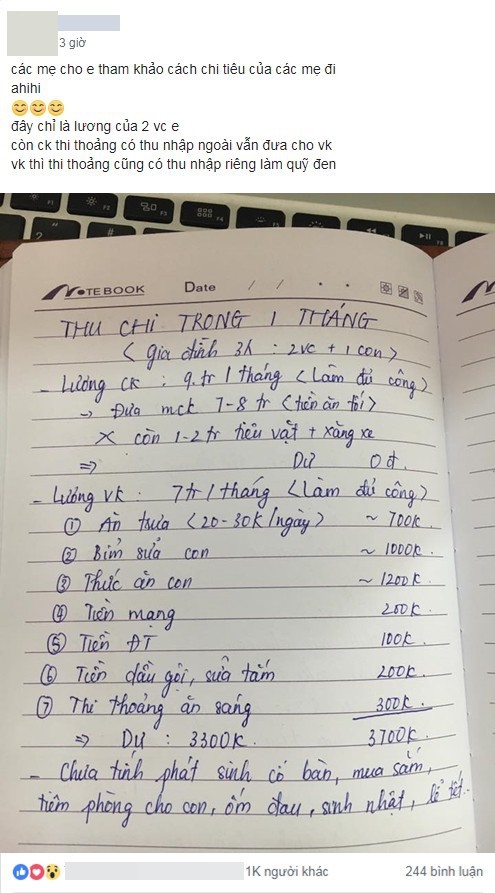 3 giờ
các mẹ cho e tham khảo cách chi tiêu của các mẹ đi
ahihi
😊😊😊
đây chỉ là lương của 2 vc e
còn ck thi thoảng có thu nhập ngoài vẫn đưa cho vk
vk thì thi thoảng cũng có thu nhập riêng làm quỹ đen
NOTEBOOK Date / /
THU CHI TRONG 1 THÁNG
< gia đình 3k : 2vc + 1 con >
- Lương CK : 9.tr / tháng < Làm đủ công >
→ Đưa mck 7-8 tr < tiền ăn tối >
X còn 1-2 tr tiêu vặt + xăng xe
=> Dư 0 đ.
- Lương VK. 7tr / tháng < Làm đủ công >
① Ăn trưa < 20-30K/ngày > ~ 700K.
② Bỉm sữa con ~ 1000K.
③ Thức ăn con ~ 1200K.
④ Tiền mạng 200K.
⑤ Tiền ĐT 100K.
⑥ Tiền dầu gội, sữa tắm 200K.
⑦ Thi thoảng ăn sáng 300K.
=> Dư : 3300K. 3700K.
- Chưa tính phát sinh cỗ bàn, mua sắm,
tiêm phòng cho con, ốm đau, sinh nhật, lễ tết.
1K người khác 244 bình luận